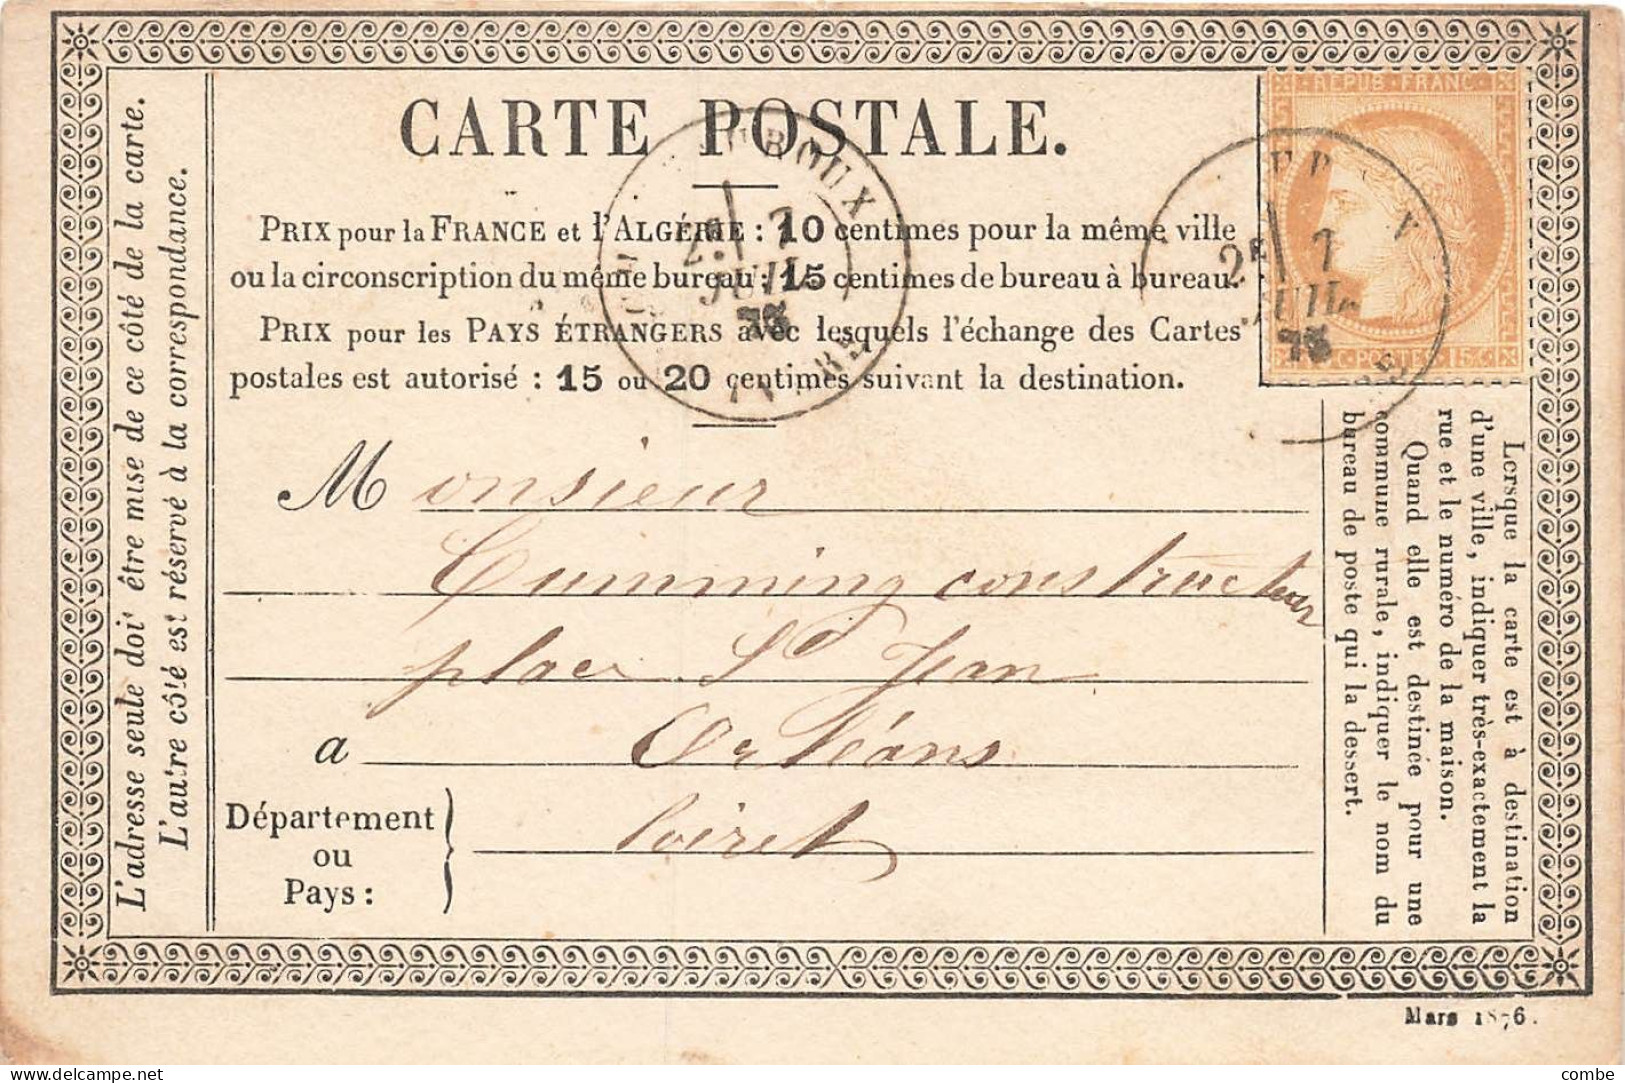 CARTE POSTALE.
PRIX pour la FRANCE et l'ALGÉRIE : 10 centimes pour la même ville
ou la circonscription du même bureau ; 15 centimes de bureau à bureau.
PRIX pour les PAYS ÉTRANGERS avec lesquels l'échange des Cartes
postales est autorisé : 15 ou 20 centimes suivant la destination.
REPUB FRANC
15 C POSTES 15 C
2E 7
JUIL
2E 7
JUIL
Monsieur
Cumming constructeur
place St Jean
a Orléans
Département
ou
Pays :
Loiret
L'adresse seule doit être mise de ce côté de la carte.
L'autre côté est réservé à la correspondance.
Lorsque la carte est à destination
d'une ville, indiquer très-exactement la
rue et le numéro de la maison.
Quand elle est destinée pour une
commune rurale, indiquer le nom du
bureau de poste qui la dessert.
Mars 1876.
delcampe.net
combe